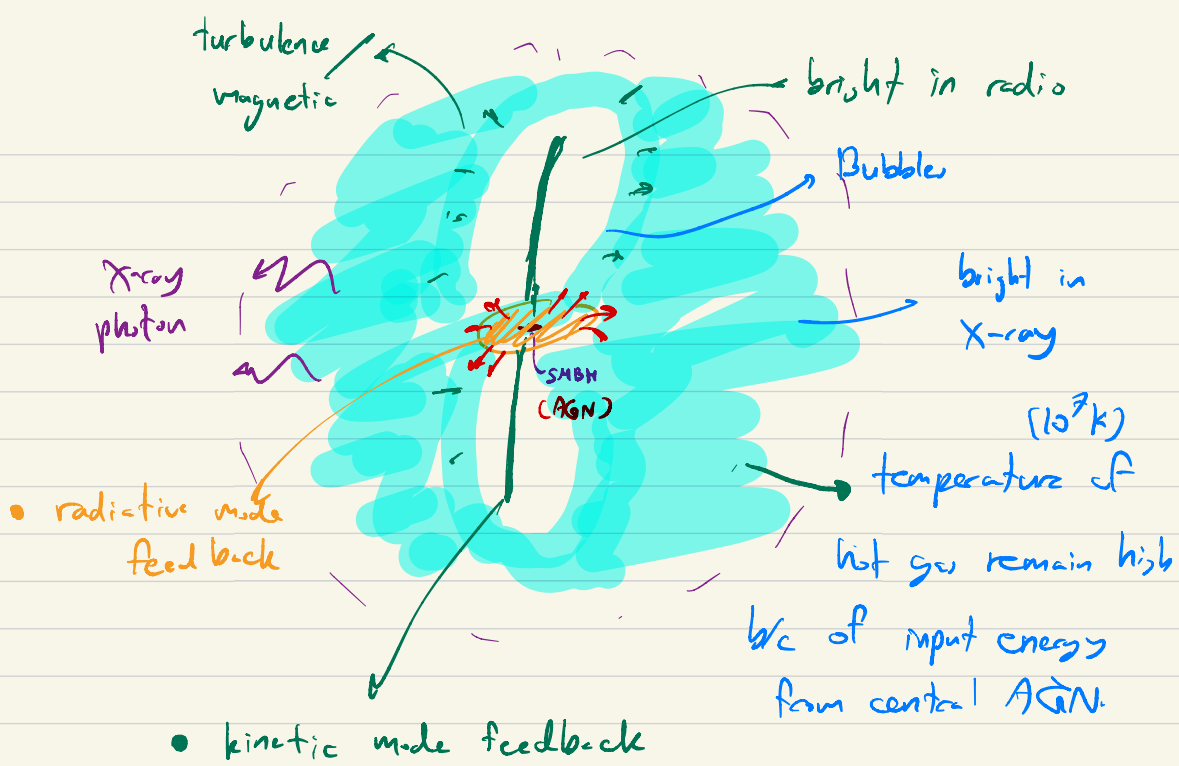 turbulence
magnetic
bright in radio
Bubbles
X-ray
photon
bright in
X-ray
SMBH
(AGN)
(10⁷K)
temperature of
hot gas remain high
b/c of input energy
from central AGN.
• radiative mode
feedback
• kinetic mode feedback